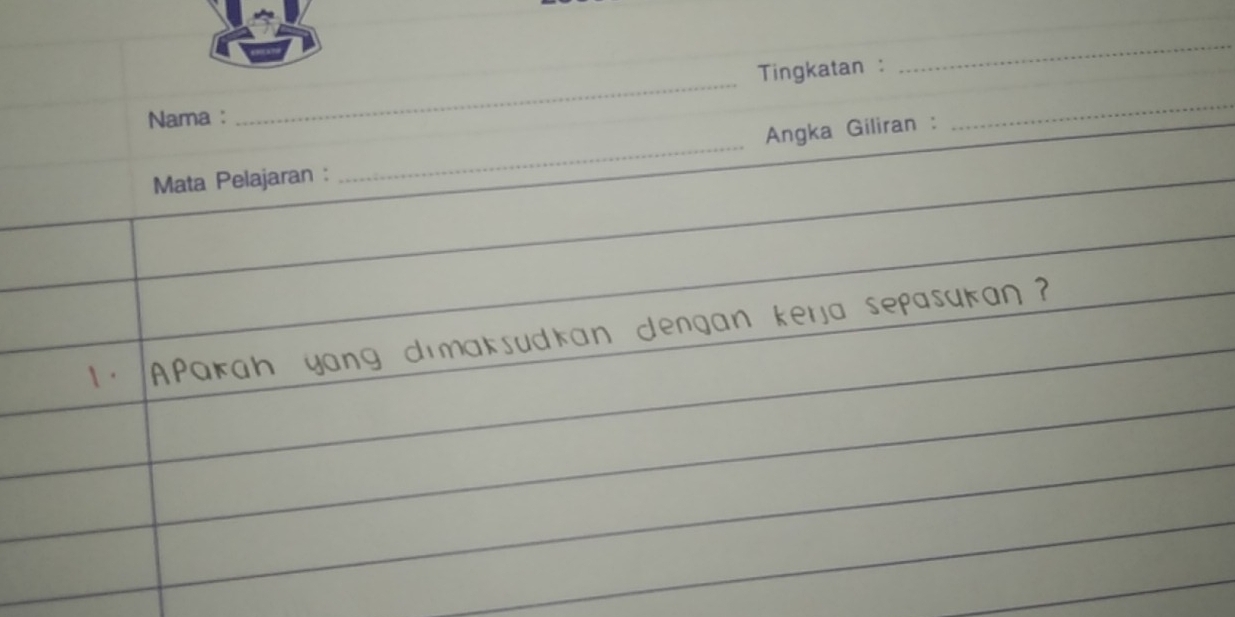 Nama :
Tingkatan :
Mata Pelajaran :
Angka Giliran :
1. Apakah yang dimaksudkan dengan kerja sepasukan?